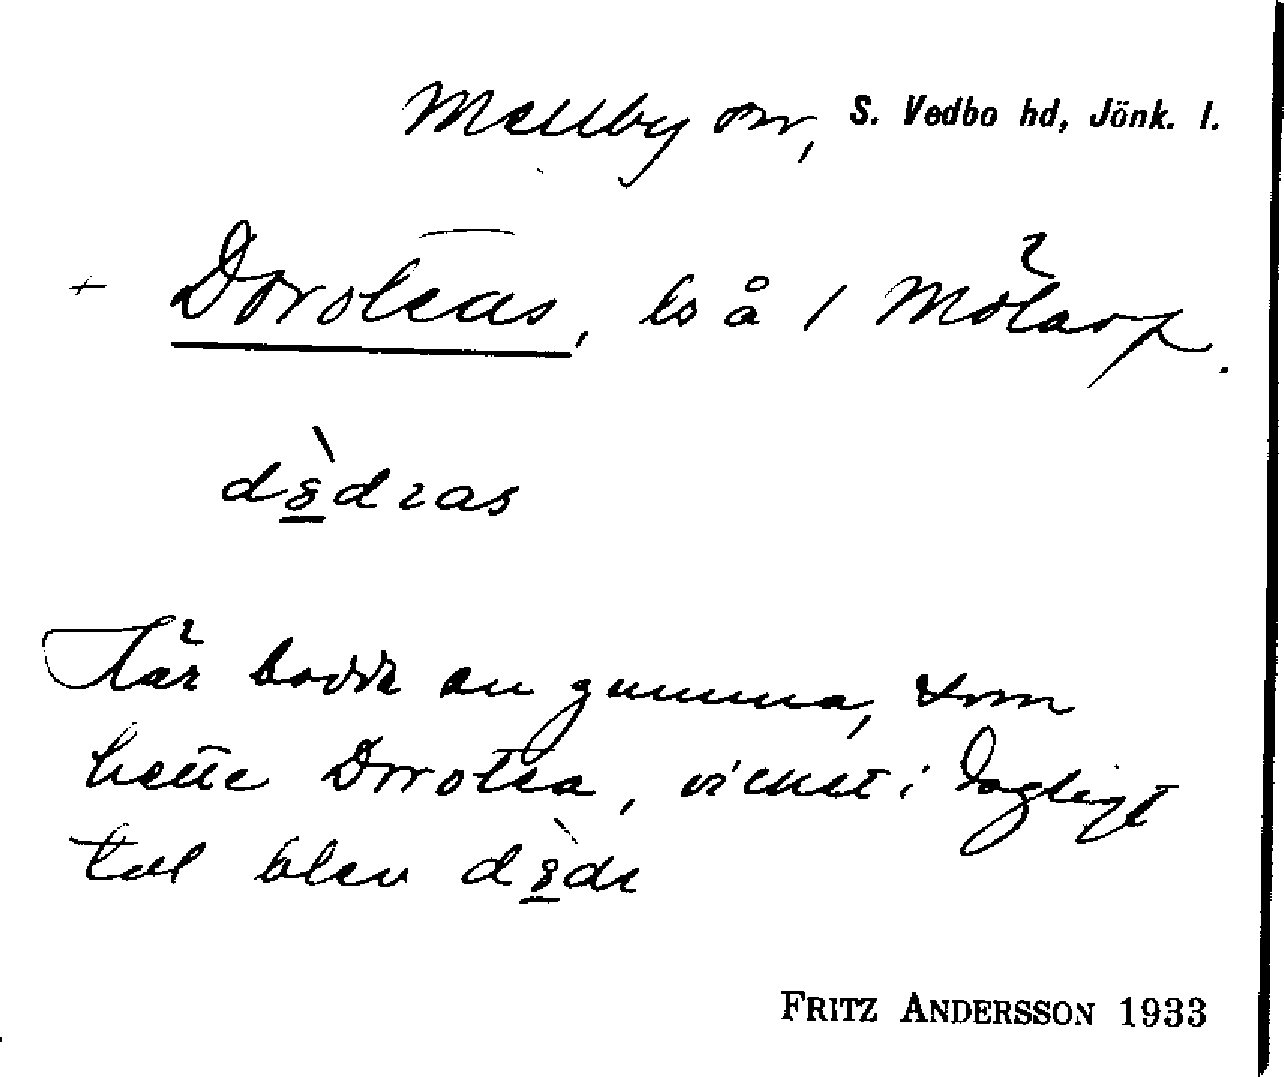 Mellby sn, S. Vedbo hd, Jönk. l.
+ Doroteas, ls å 1 Mölarp.
dödras
Här bodde en gumma, som
hette Dorotea, vilket i dagligt
tal blev
FRITZ ANDERSSON 1933